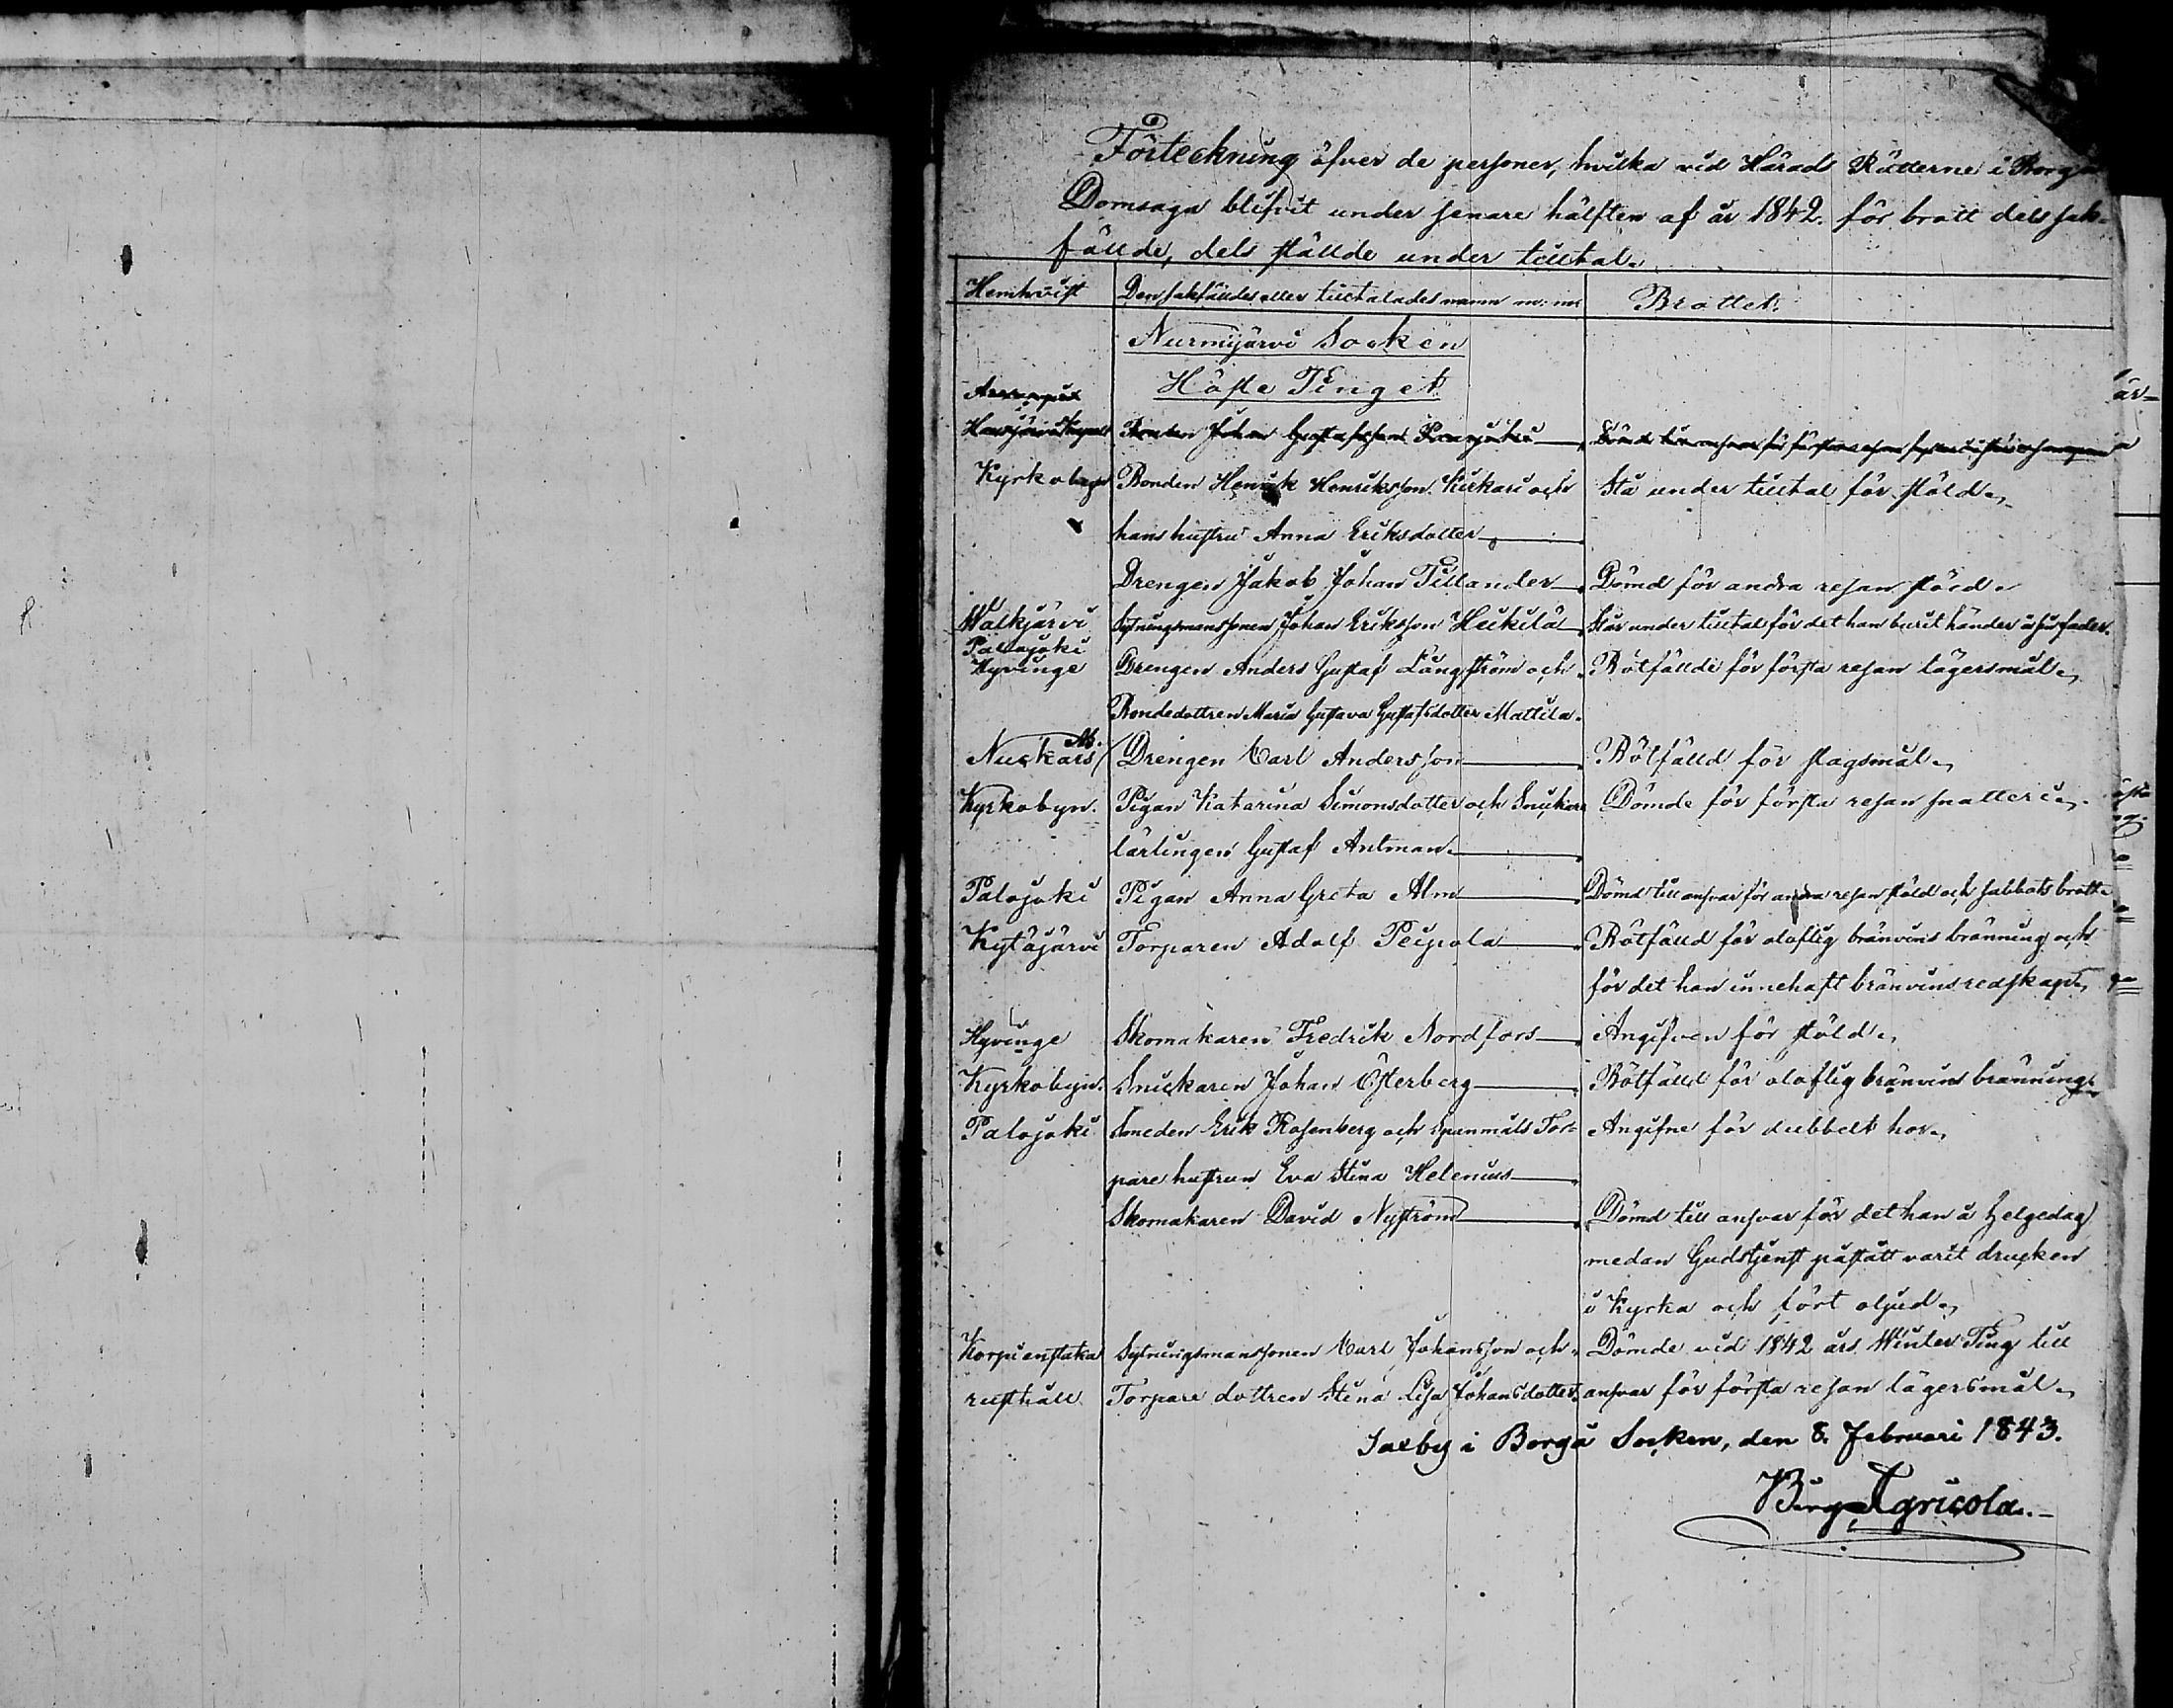 Förteckning öfver de personer, hvilka vid Härads Rätterne i Borgå
Domsaga blifvit under senare hälften af år 1842. för brott dels sak-
fällde, dels ställde under tilltal.
Hemhvist Den sakfälldes eller tilltalades namn m: m: Brottet.
Nurmijärvi Socken
Höste Tinget
Bonden Johan Gustafsson
Kyrkobyn Bonden Henrik Henriksson Kirkari och Stå under tilltal för stöld.
hans hustru Anna Eriksdotter
Drengen Jakob Johan Tillander Dömd för andra resan stöld.
Walkjärvi Sytningsmanssonen Johan Eriksson Heikilä Står under tilltal för det han burit händer å sin fader.
Palojoki
Hyvinge Drengen Anders Gustaf Långström och Bötfällde för första resan lägersmål.
Bondedottren Maria Gustava Gustafsdotter Mattila.
Nuckars Drengen Carl Andersson Bötfälld för slagsmål.
Kyrkobyn. Pigan Katarina Simonsdotter och Snickare Dömde för första resan snatteri.
lärlingen Gustaf Antman.
Palojoki Pigan Anna Greta Alm Dömd till ansvar för andra resan stöld och sabbatsbrott.
Kytäjärvi Torparen Adolf Peipola Bötfälld för oloflig bränvins bränning och
för det han innehaft bränvinsredskap.
Hyvinge Skomakaren Fredrik Nordfors Angifven för stöld.
Kyrkobyn. Snickaren Johan Österberg Bötfälld för oloflig bränvins bränning.
Palojoki Smeden Erik Rosenberg och Spanmåls Tor- Angifne för dubbelt hor.
pare hustrun Eva Stina Helenius
Skomakaren David Nyström Dömd till ansvar för det han å helgedag
medan Gudstjenst påstått varit drucken
i Kyrka och fört oljud.
Korpi enstaka Sytningsmanssonen Carl Johansson och Dömde vid 1842 års Winter Ting till
rusthåll Torpare dottren Stina Lisa Johansdotter. ansvar för första resan lägersmål.
Saxby i Borgå Socken, den 8. Februari 1843.
Agricola.